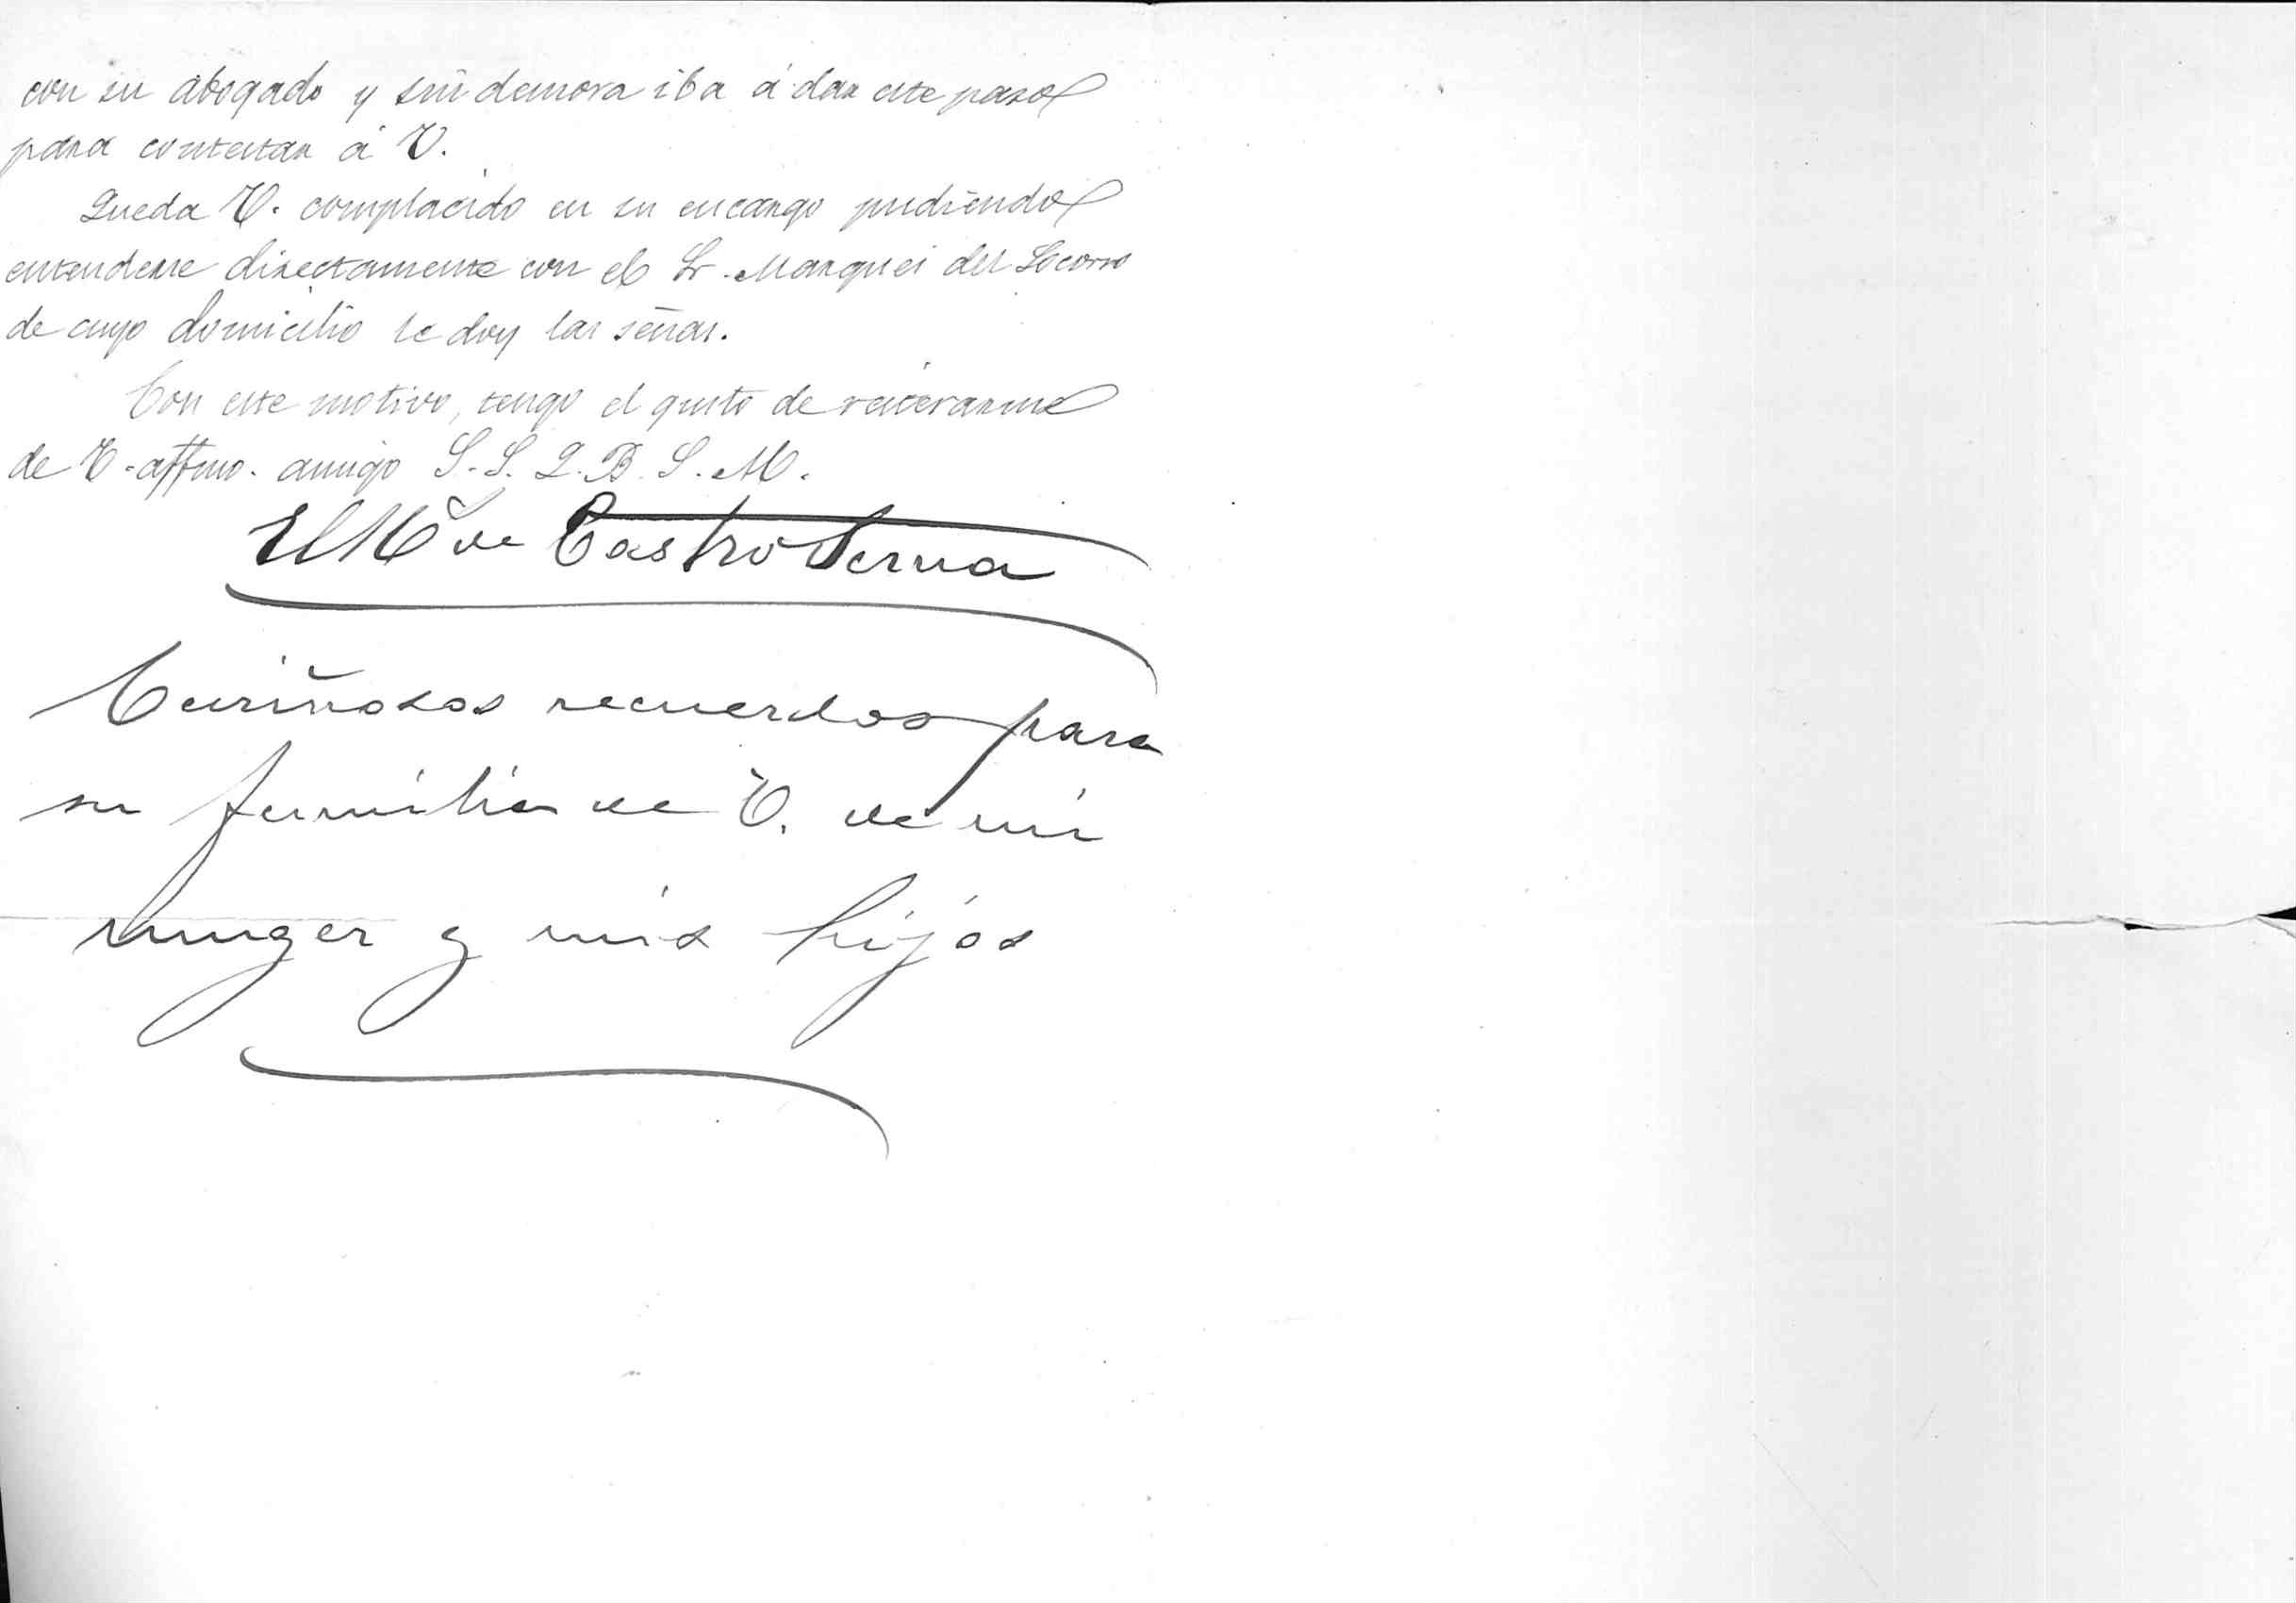 con su abogado y sin demora iba á dar este paso
para contestar á V.
Queda V. complacido en su encargo pudiendo
entenderse directamente con el Sr. Marques del Socorro
de cuyo domicilio le doy las señas.
Con este motivo, tengo el gusto de reiterarme
de V. affmo. amigo S. S. Q. B. S. M.
El Mº de Castro Serna
Cariñosos recuerdos para
su familia de V. de mi
muger y mis hijos